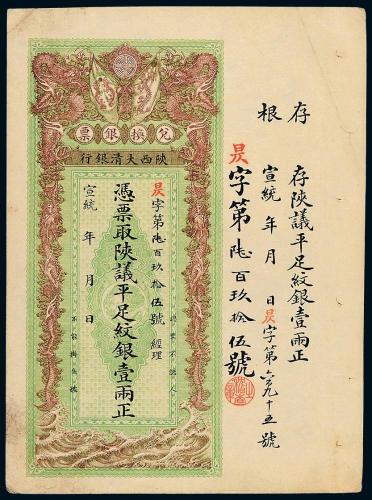 存根
存陝議平足紋銀壹兩正
宣統 年 月 日昃字第六百九十五號
昃字第陸百玖拾伍號
兌換銀票
陝西大清銀行
認票不認人
昃字第陸百玖拾伍號 經理
憑票取陝議平足紋銀壹兩正
宣統 年 月 日